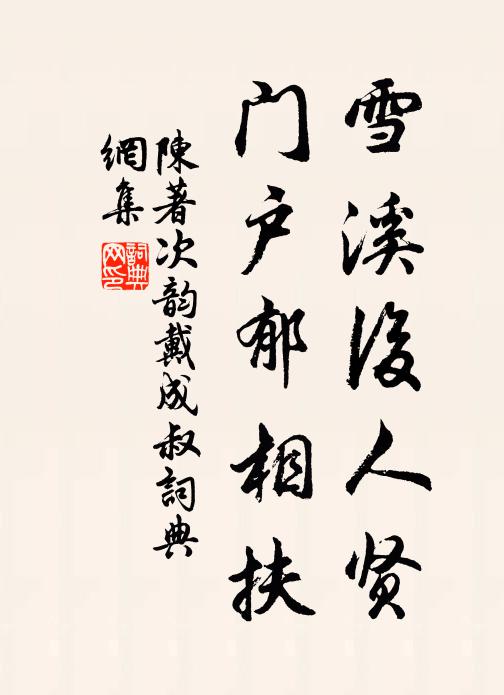 雪溪後人贤
门户郁相扶
陳著次韵戴成叔詞典
網集
詞典
网印